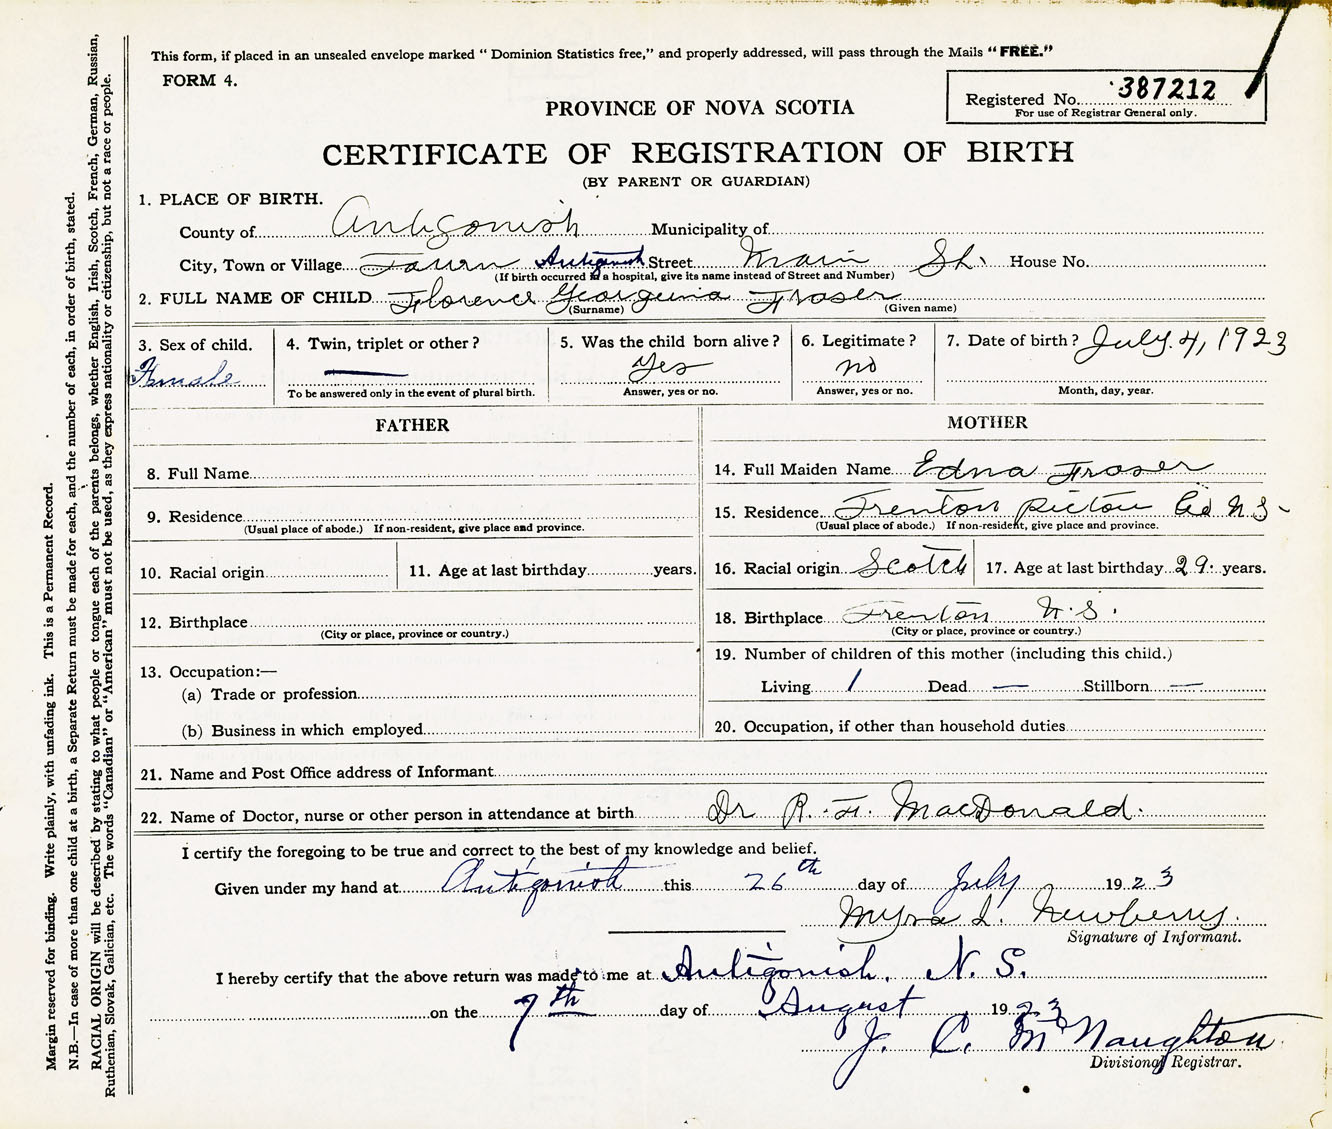 This form, if placed in an unsealed envelope marked " Dominion Statistics free," and properly addressed, will pass through the Mails "FREE."
FORM 4.
Registered No. 387212
For use of Registrar General only.
PROVINCE OF NOVA SCOTIA
CERTIFICATE OF REGISTRATION OF BIRTH
(BY PARENT OR GUARDIAN)
1. PLACE OF BIRTH.
County of Antigonish Municipality of
City, Town or Village Town Antigonish Street Main St. House No.
(If birth occurred in a hospital, give its name instead of Street and Number)
2. FULL NAME OF CHILD Florence Georgina Fraser
(Surname) (Given name)
3. Sex of child. 4. Twin, triplet or other? 5. Was the child born alive? 6. Legitimate? 7. Date of birth? July 4, 1923
Female — Yes no
To be answered only in the event of plural birth. Answer, yes or no. Answer, yes or no. Month, day, year.
FATHER
8. Full Name
9. Residence
(Usual place of abode.) If non-resident, give place and province.
10. Racial origin 11. Age at last birthday years.
12. Birthplace
(City or place, province or country.)
13. Occupation:—
(a) Trade or profession
(b) Business in which employed
MOTHER
14. Full Maiden Name Edna Fraser
15. Residence Trenton Pictou Co N S-
(Usual place of abode.) If non-resident, give place and province.
16. Racial origin Scotch 17. Age at last birthday 29. years.
18. Birthplace Trenton N.S.
(City or place, province or country.)
19. Number of children of this mother (including this child.)
Living 1 Dead — Stillborn —
20. Occupation, if other than household duties
21. Name and Post Office address of Informant
22. Name of Doctor, nurse or other person in attendance at birth Dr R. F. MacDonald.
I certify the foregoing to be true and correct to the best of my knowledge and belief.
Given under my hand at Antigonish this 26th day of July 1923
Myra L. Newberry.
Signature of Informant.
I hereby certify that the above return was made to me at Antigonish, N. S.
on the 7th day of August 1923
J. C. McNaughton
Divisional Registrar.
Margin reserved for binding. Write plainly, with unfading ink. This is a Permanent Record.
N.B.—In case of more than one child at a birth, a Separate Return must be made for each, and the number of each, in order of birth, stated.
RACIAL ORIGIN will be described by stating to what people or tongue each of the parents belongs, whether English, Irish, Scotch, French, German, Russian,
Ruthenian, Slovak, Galician, etc. The words "Canadian" or "American" must not be used, as they express nationality or citizenship, but not a race or people.